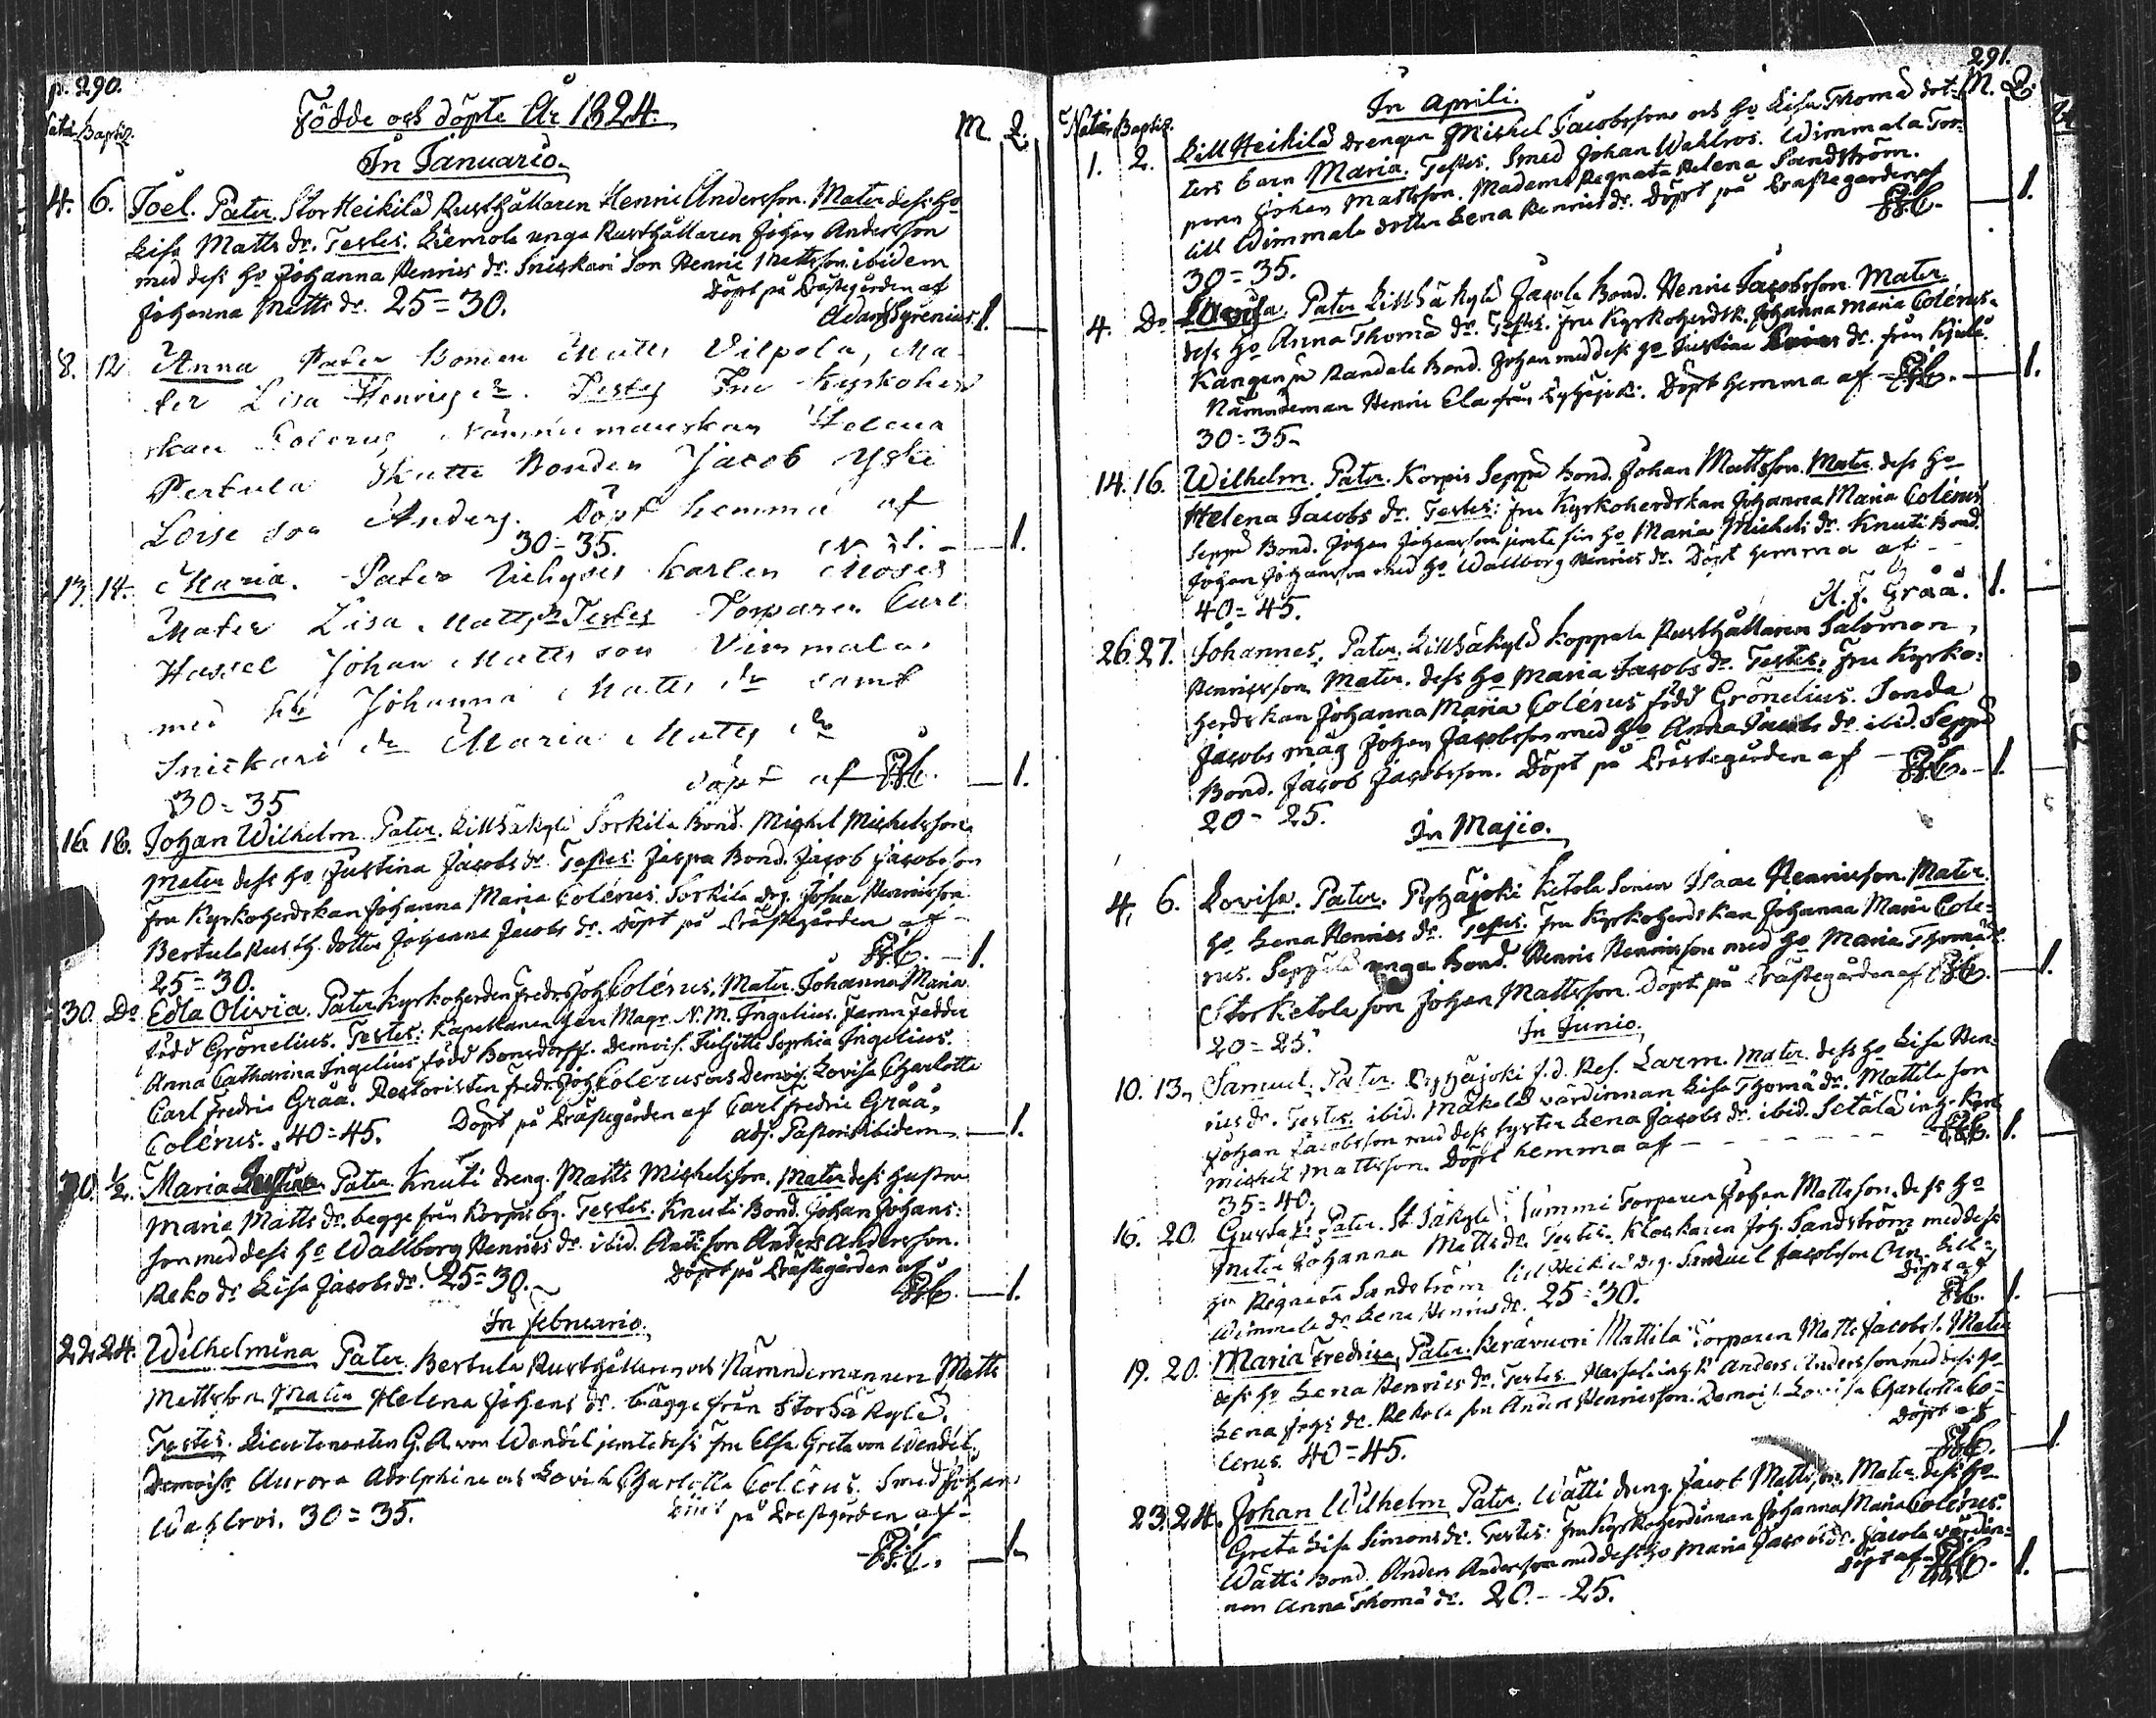 p. 290.
Födde och döpte År 1824.
Nati Baptiz. M. Q.
In Januario.
4. 6. Joel. Pater. Stor Heikilä Rusthållaren Henric Andersson. Mater dess ho
Lisa Matts dr. Testes: unga Rusthållaren Johan Andersson
med dess ho Johanna Henrics dr. Sniskari Son Henric Mattsson ibidem
Johanna Matts dr. 25=30. Döpt på Prästegården af
Adam Syrenius. 1.
8. 12 Anna Pater Bonden Matts Vilpola, Ma-
ter Lisa Henrics dr. Testes Fru Kyrkoher
skan Colerus, Nämndemanskan Helena
Pertula Skutti Bonden Jacob Yski
Loise son Anders. Döpt hemma af
30=35. 1.
13. 14. Maria. Pater karlen Moses
Mater Lisa Matts dr Testes Torparen Carl
Hassel Johan Matts son Vimmala
med ho Johanna Matts dr samt
Sniskari dr Maria Matts dr
döpt af FJC. 1.
30=35
16. 18. Johan Wilhelm. Pater. Lillsäkylä Sorkila Bond. Michel Michelsson
Mater dess ho Justina Jacobs dr. Testes. Jaspa Bond. Jacob Jacobsson
Fru Kyrkoherdskan Johanna Maria Colérus. Sorkila drg. Johan Henricsson
Bertula Rusth. dotter Johanna Jacobs dr. Döpt på Prästegården af
25=30. FJC. 1.
30. Do Edla Olivia. Pater Kyrkoherden Fredr. Joh Colérus. Mater. Johanna Maria
född Grönelius. Testes: Kapellanen Herr Magr. N. M. Ingelius.
Anna Catharina Ingelius född Bonsdorff. Demois. Juliette Sophia Ingelius.
Carl Fredric Gråå. Rectoristen Fredr. Joh Colerus och Demois. Lovisa Charlotta
Colérus. 40=45. Döpt på Prästegården af Carl Fredric Gråå,
adj. Pastoris ibidem. 1.
30. ½. Maria Pater Knuti dreng. Matts Michelsson. Mater dess hustru
Maria Matts dr. begge från Korpis by. Testes. Knuti Bond. Johan Johans:
son med dess ho Wallborg Henrics dr. ibid. Anti son Anders Andersson.
Reko dr Lisa Jacobs dr. 25=30. Döpt på Prästegården af
FJC. 1.
In Februario.
22. 24. Wilhelmina Pater. Bertula Rusthållaren och Nämndemannen Matts
Mattsson Mater Helena Johans dr. bägge från Storsäkylä.
Testes. Lieutenanten G. A. von Wendel jemte dess Fru Elsa Greta von Wendel.
Demoislr Aurora Adolphina och Lovisa Charlotta Colérus. Smed Johan
Wahlros. 30=35. Döpt på Prestgården af
FJC. 1.
291.
Nati Baptiz. In Aprili. M. Q.
1. 2. Lill Heikilä drengen Michel Jacobsson och ho Lisa Thomæ dot-
ters barn Maria. Testes. Smed Johan Wahlros. Wimmala Tor-
paren Johan Mattsson. Madame Regnata Helena Sandström.
Lill Wimmala dotter Lena Henrics dr. Döpt på Prästegården af
30=35. FJC. 1.
4. Do Lovisa. Pater Lillsäkylä Jacola Bond. Henric Jacobsson. Mater
dess ho Anna Thomæ dr. Testes. Fru Kyrkoherdsk. Johanna Maria Colérus.
Kangenpä Randala Bond. Johan med dess ho Justina dr. från
Nämndeman Henric Ela från Pyhäjoki. Döpt hemma af FJC. 1.
30=35.
14. 16. Wilhelm. Pater. Korpis Seppä Bond. Johan Mattsson. Mater dess ho
Helena Jacobs dr. Testes: Fru Kyrkoherdskan Johanna Maria Colérus
Seppä Bond. Johan Johansson jemte sin ho Maria Michels dr. Knuti Bond.
Johan Johansson med ho Wallborg Henrics dr. Döpt hemma af
40=45. C. F. Gråå. 1.
26. 27. Johannes. Pater. Lillsäkylä Koppala Rusthållaren Salomon
Henricsson. Mater. dess ho Maria Jacobs dr. Testes. Fru Kyrko:
herdskan Johanna Maria Colérus född Grönelius. Sonda
Jacobs måg Johan Jacobsson med ho Anna Jacobs dr ibid. Seppä
Bond. Jacob Jacobsson. Döpt på Prästegården af FJC. 1.
20 - 25.
In Majio.
4. 6. Lovisa. Pater. Pyhäjoki Ketola Sonen Isaac Henricsson. Mater
ho Lena Henrics dr. Testes. Fru Kyrkoherdskan Johanna Maria Cole-
rus. Seppälä unga Bond. Henric Henricsson med ho Maria Thomæ dr.
Stor Ketola son Johan Mattsson. Döpt på Prästegården af FJC. 1.
20=25.
In Junio.
10. 13. Samuel. Pater. Pyhäjoki s. d. Res. Larm. Mater. dess ho Lisa Hen-
rics dr. Testes. ibid. Mäkelä värdinnan Lisa Thomæ dr. Mattila son
Johan Jacobsson med dess syster Lena Jacobs dr. ibid. Setälä inh. Karl
Michel Mattsson. Döpt hemma af - - - - FJC. 1.
35=40.
16. 20. Gustaf. Pater. St. Säkylä Summi Torparen Johan Mattsson. dess ho
Mater Johanna Matts dr. Testes. Klockaren Joh. Sandström med dess
ho Regnata Sandström Lill Heikilä drg. Samuel Jacobsson Lill-
Wimmala dr Lena Henrics dr. 25=30. Döpt af
FJC. 1.
19. 20. Maria Fredrica. Pater. Keravuori Mattila Torparen Matts Jacobs s. Mater
dess ho Lena Henrics dr. Testes. inh. k. Anders Andersson med dess ho
Lena Johs dr. Rekola son Anders Henricsson. Demois. Lovisa Charlotta Co-
lerus. 40=45. Döpt af
FJC. 1.
23. 24. Johan Wilhelm Pater. Wätti dreng. Jacob Mattsson. Mater dess ho
Greta Lisa Simons dr. Testes: Fru Kyrkoherdinnan Johanna Maria Colérus.
Wätti Bond. Anders Andersson med dess ho Maria Jacobs dr. Jacola värdin-
nan Anna Thomæ dr. 20.--25. Döpt af FJC. 1.